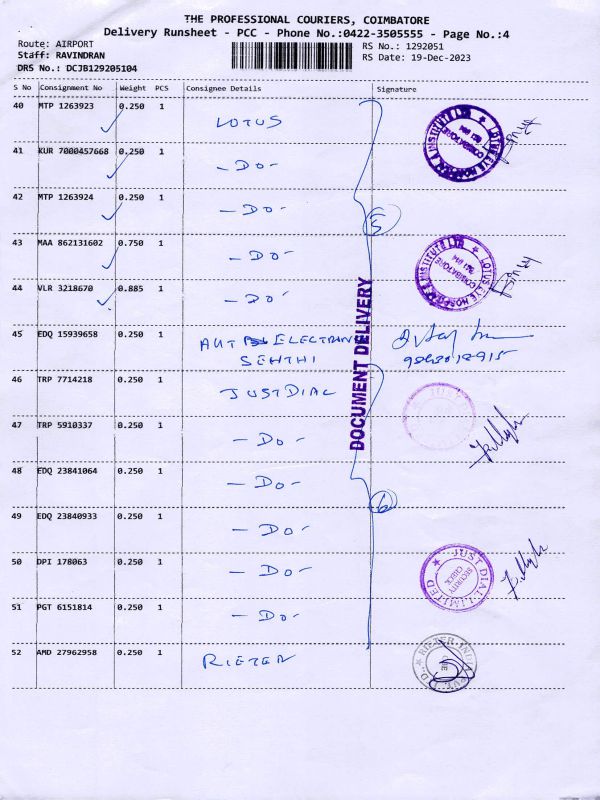 THE PROFESSIONAL COURIERS, COIMBATORE
Delivery Runsheet - PCC - Phone No.:0422-3505555 - Page No.:4
Route: AIRPORT
RS No.: 1292051
Staff: RAVINDRAN
RS Date: 19-Dec-2023
DRS No.: DCJB129205104
S No Consignment No Weight PCS Consignee Details Signature
40 MTP 1263923 0.250 1 LOTUS
41 KUR 7000457668 0.250 1 -DO-
42 MTP 1263924 0.250 1 -DO-
5
43 MAA 862131602 0.750 1 -DO-
44 VLR 3218670 0.885 1 -DO-
DOCUMENT DELIVERY
45 EDQ 15939658 0.250 1
46 TRP 7714218 0.250 1 JUSTDIAL
JUST
47 TRP 5910337 0.250 1 -DO-
48 EDQ 23841064 0.250 1 -DO-
6
49 EDQ 23840933 0.250 1 -DO-
50 DPI 178063 0.250 1 -DO-
JUST DIAL LIMITED
SECURITY
CHECK
51 PGT 6151814 0.250 1 -DO-
52 AMD 27962958 0.250 1 RIETER
RIETER INDIA